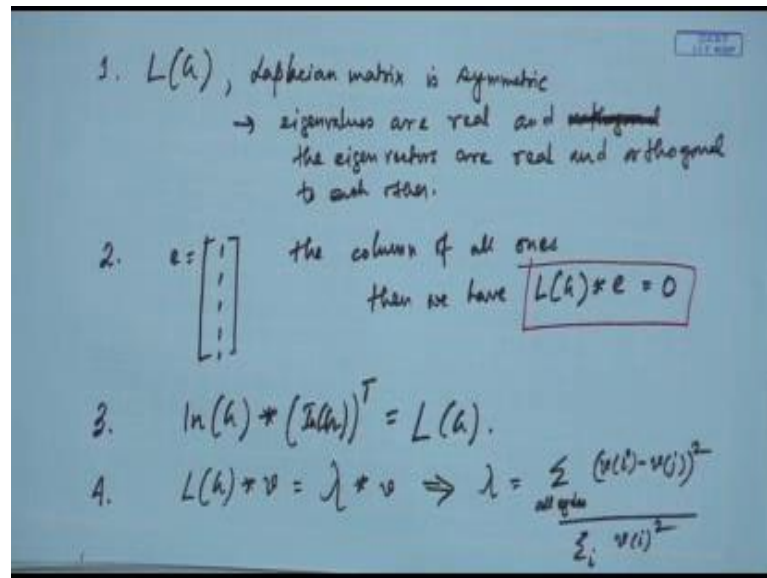 1. L(G), Laplacian matrix is symmetric
→ eigenvalues are real and
the eigen vectors are real and orthogonal
to each other.
2. e = [1 1 1 1 1] the column of all ones
then we have L(G)*e = 0
3. In(G) * (In(G))ᵀ = L(G).
4. L(G)*v = λ*v ⇒ λ = Σ all edges (v(i)-v(j))² / Σi v(i)²